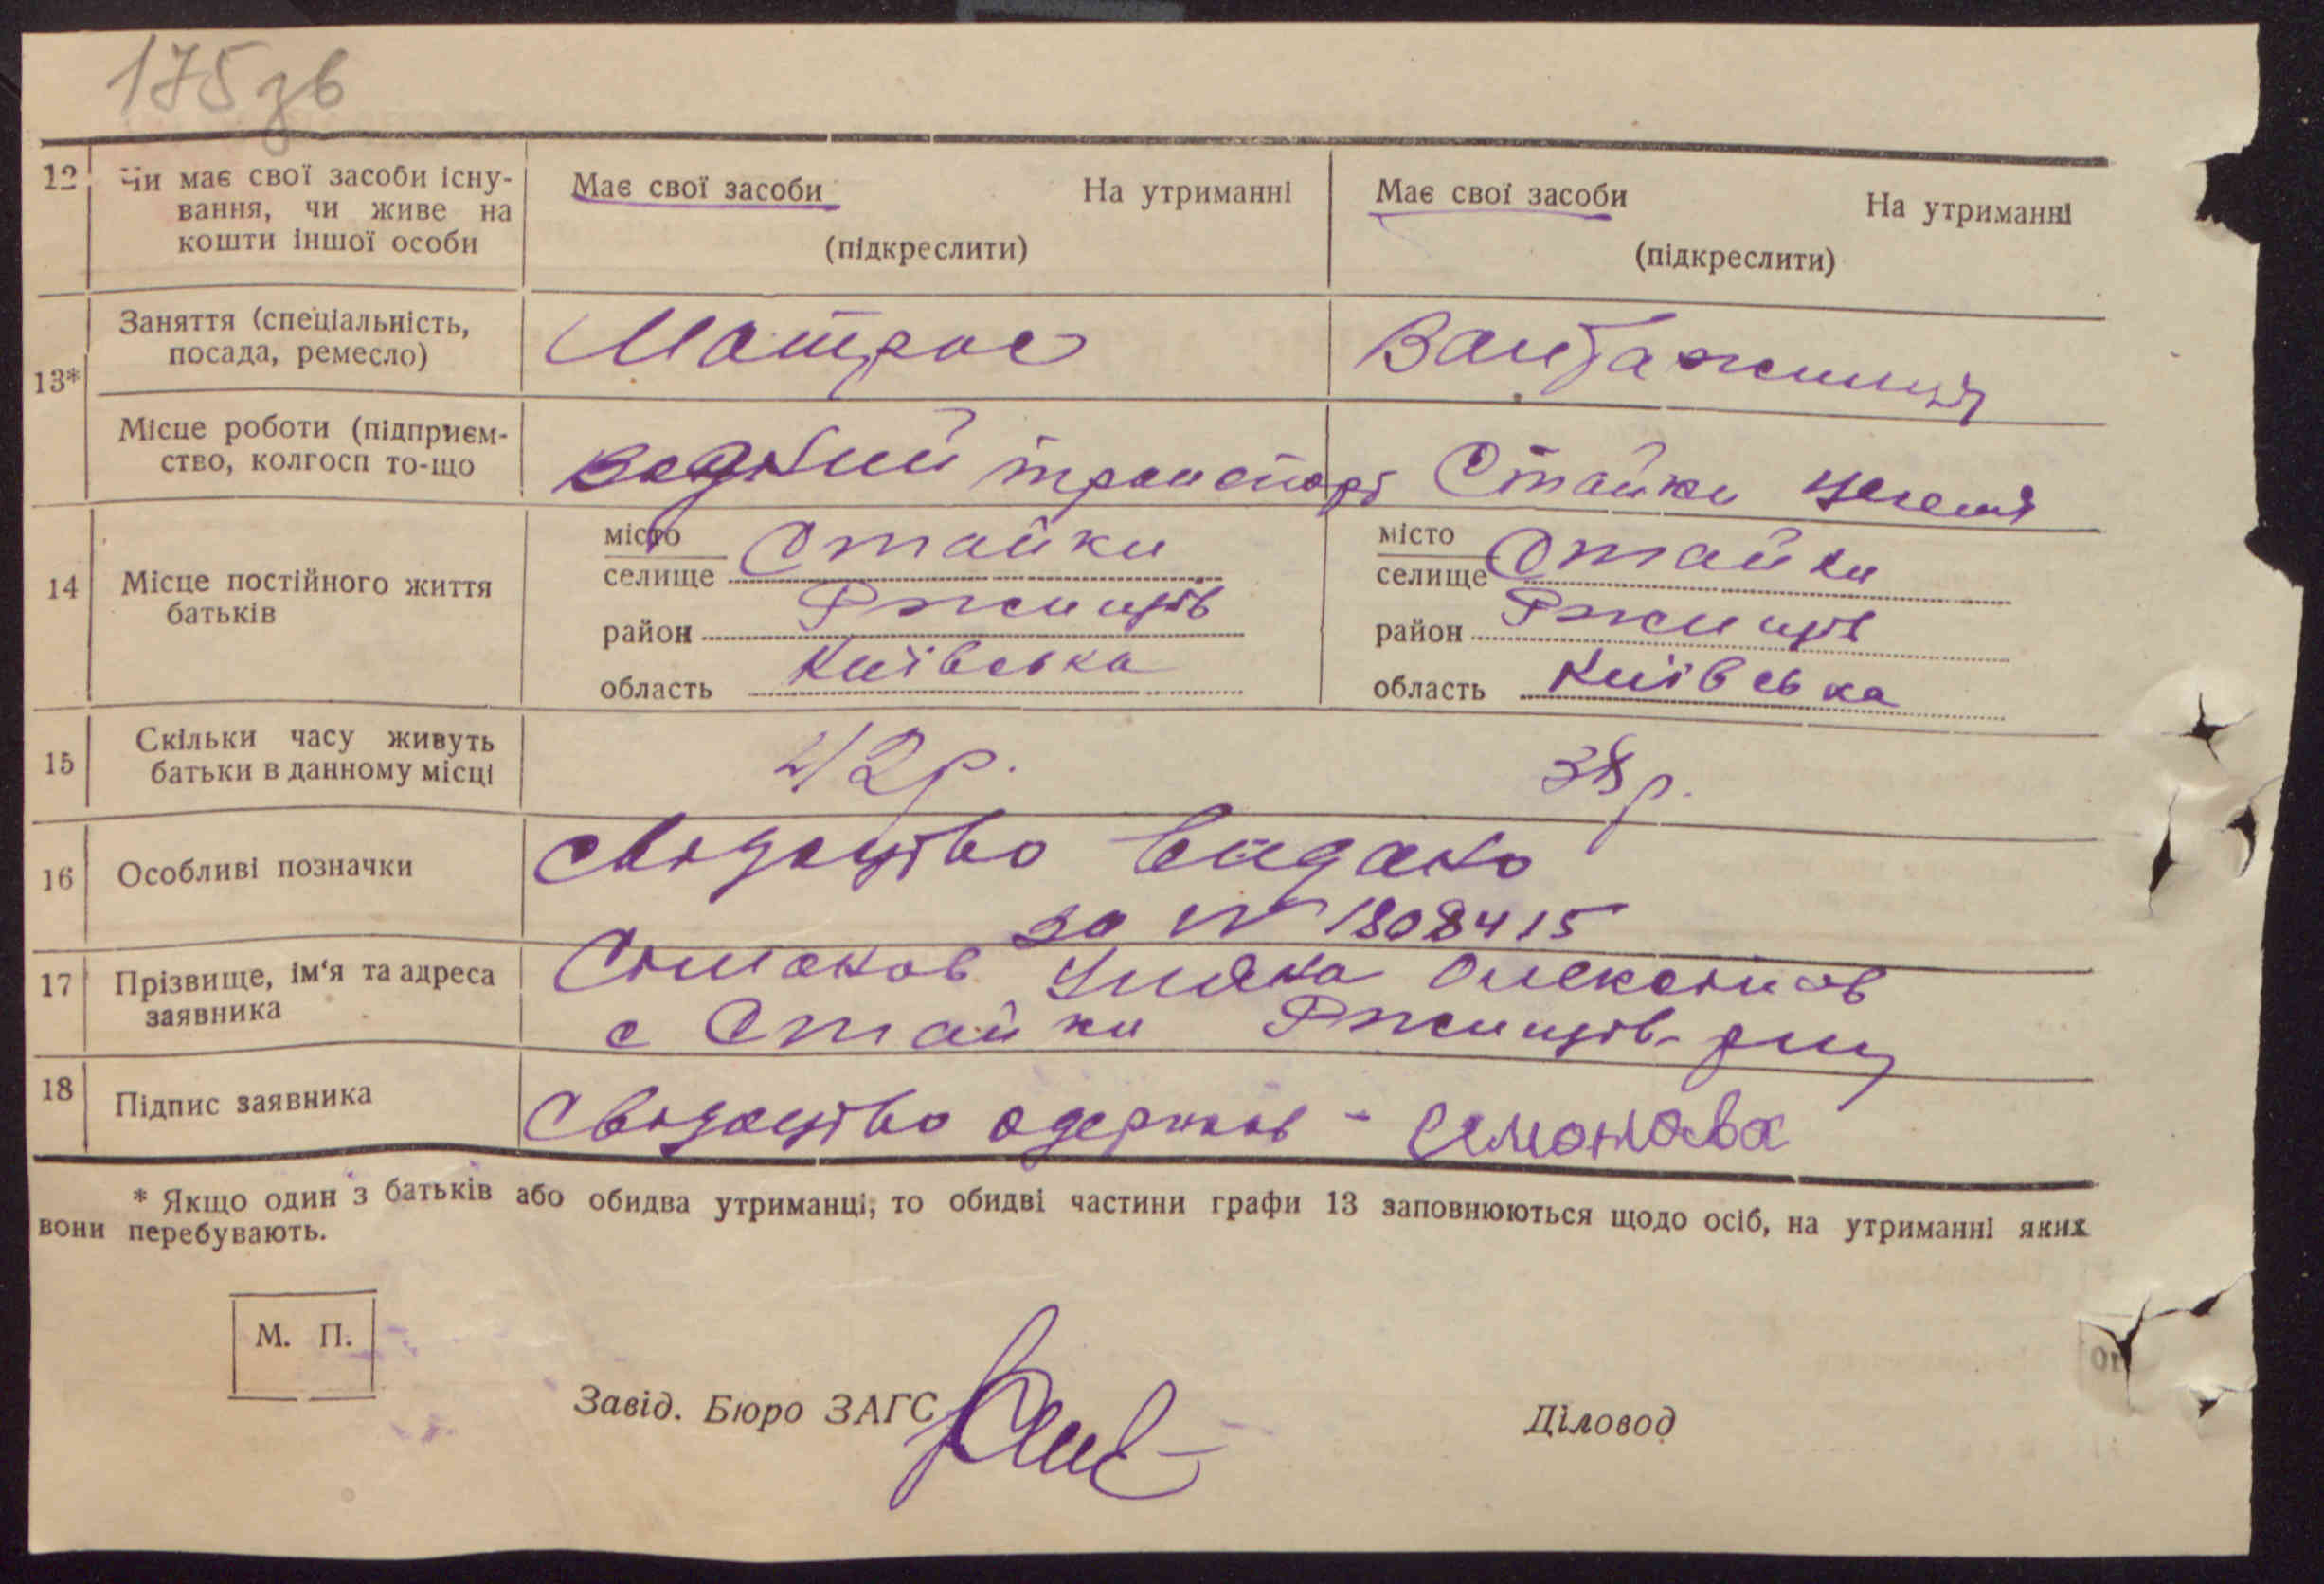 175 зв
12 Чи має свої засоби існу- Має свої засоби На утриманні Має свої засоби На утриманні
вання, чи живе на
кошти іншої особи (підкреслити) (підкреслити)
13*
Заняття (спеціальність, Матрос Вантажниця
посада, ремесло)
Місце роботи (підприєм- водний транспорт Стайки
ство, колгосп то-що
14 Місце постійного життя
батьків
місто Стайки місто Стайки
селище селище
район Ржищів район Ржищів
область Київська область Київська
15 Скільки часу живуть 42 р. 38 р.
батьки в данному місці
16 Особливі позначки свідоцтво видано
за № 1808415
17 Прізвище, ім‘я та адреса Олексіїв
заявника с Стайки Ржищів-
18 Підпис заявника Свідоцтво одержав - Симонова
* Якщо один з батьків або обидва утриманці, то обидві частини графи 13 заповнюються щодо осіб, на утриманні яких
вони перебувають.
М. П.
Завід. Бюро ЗАГС Діловод